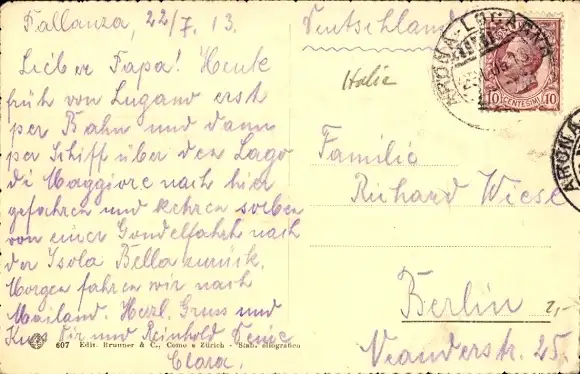 Pallanza, 22/7. 13.
Lieber Papa! Heute
früh von Lugano erst
per Bahn und dann
per Schiff über den Lago
di Maggiore nach hier
gefahren und kehren soeben
von einer Gondelfahrt nach
der Isola Bella zurück.
Morgen fahren wir nach
Mailand. Herzl. Gruss und
Kuss Dir und Reinhold Deine
Clara.
607 Edit. Brunner & C., Como e Zürich - Stab. eliografico
Deutschland
Italie
10 CENTESIMI 10
ARONA-LOCARNO
ARONA
Familie
Richard Wiese
Berlin
Neanderstr. 25.
2,-